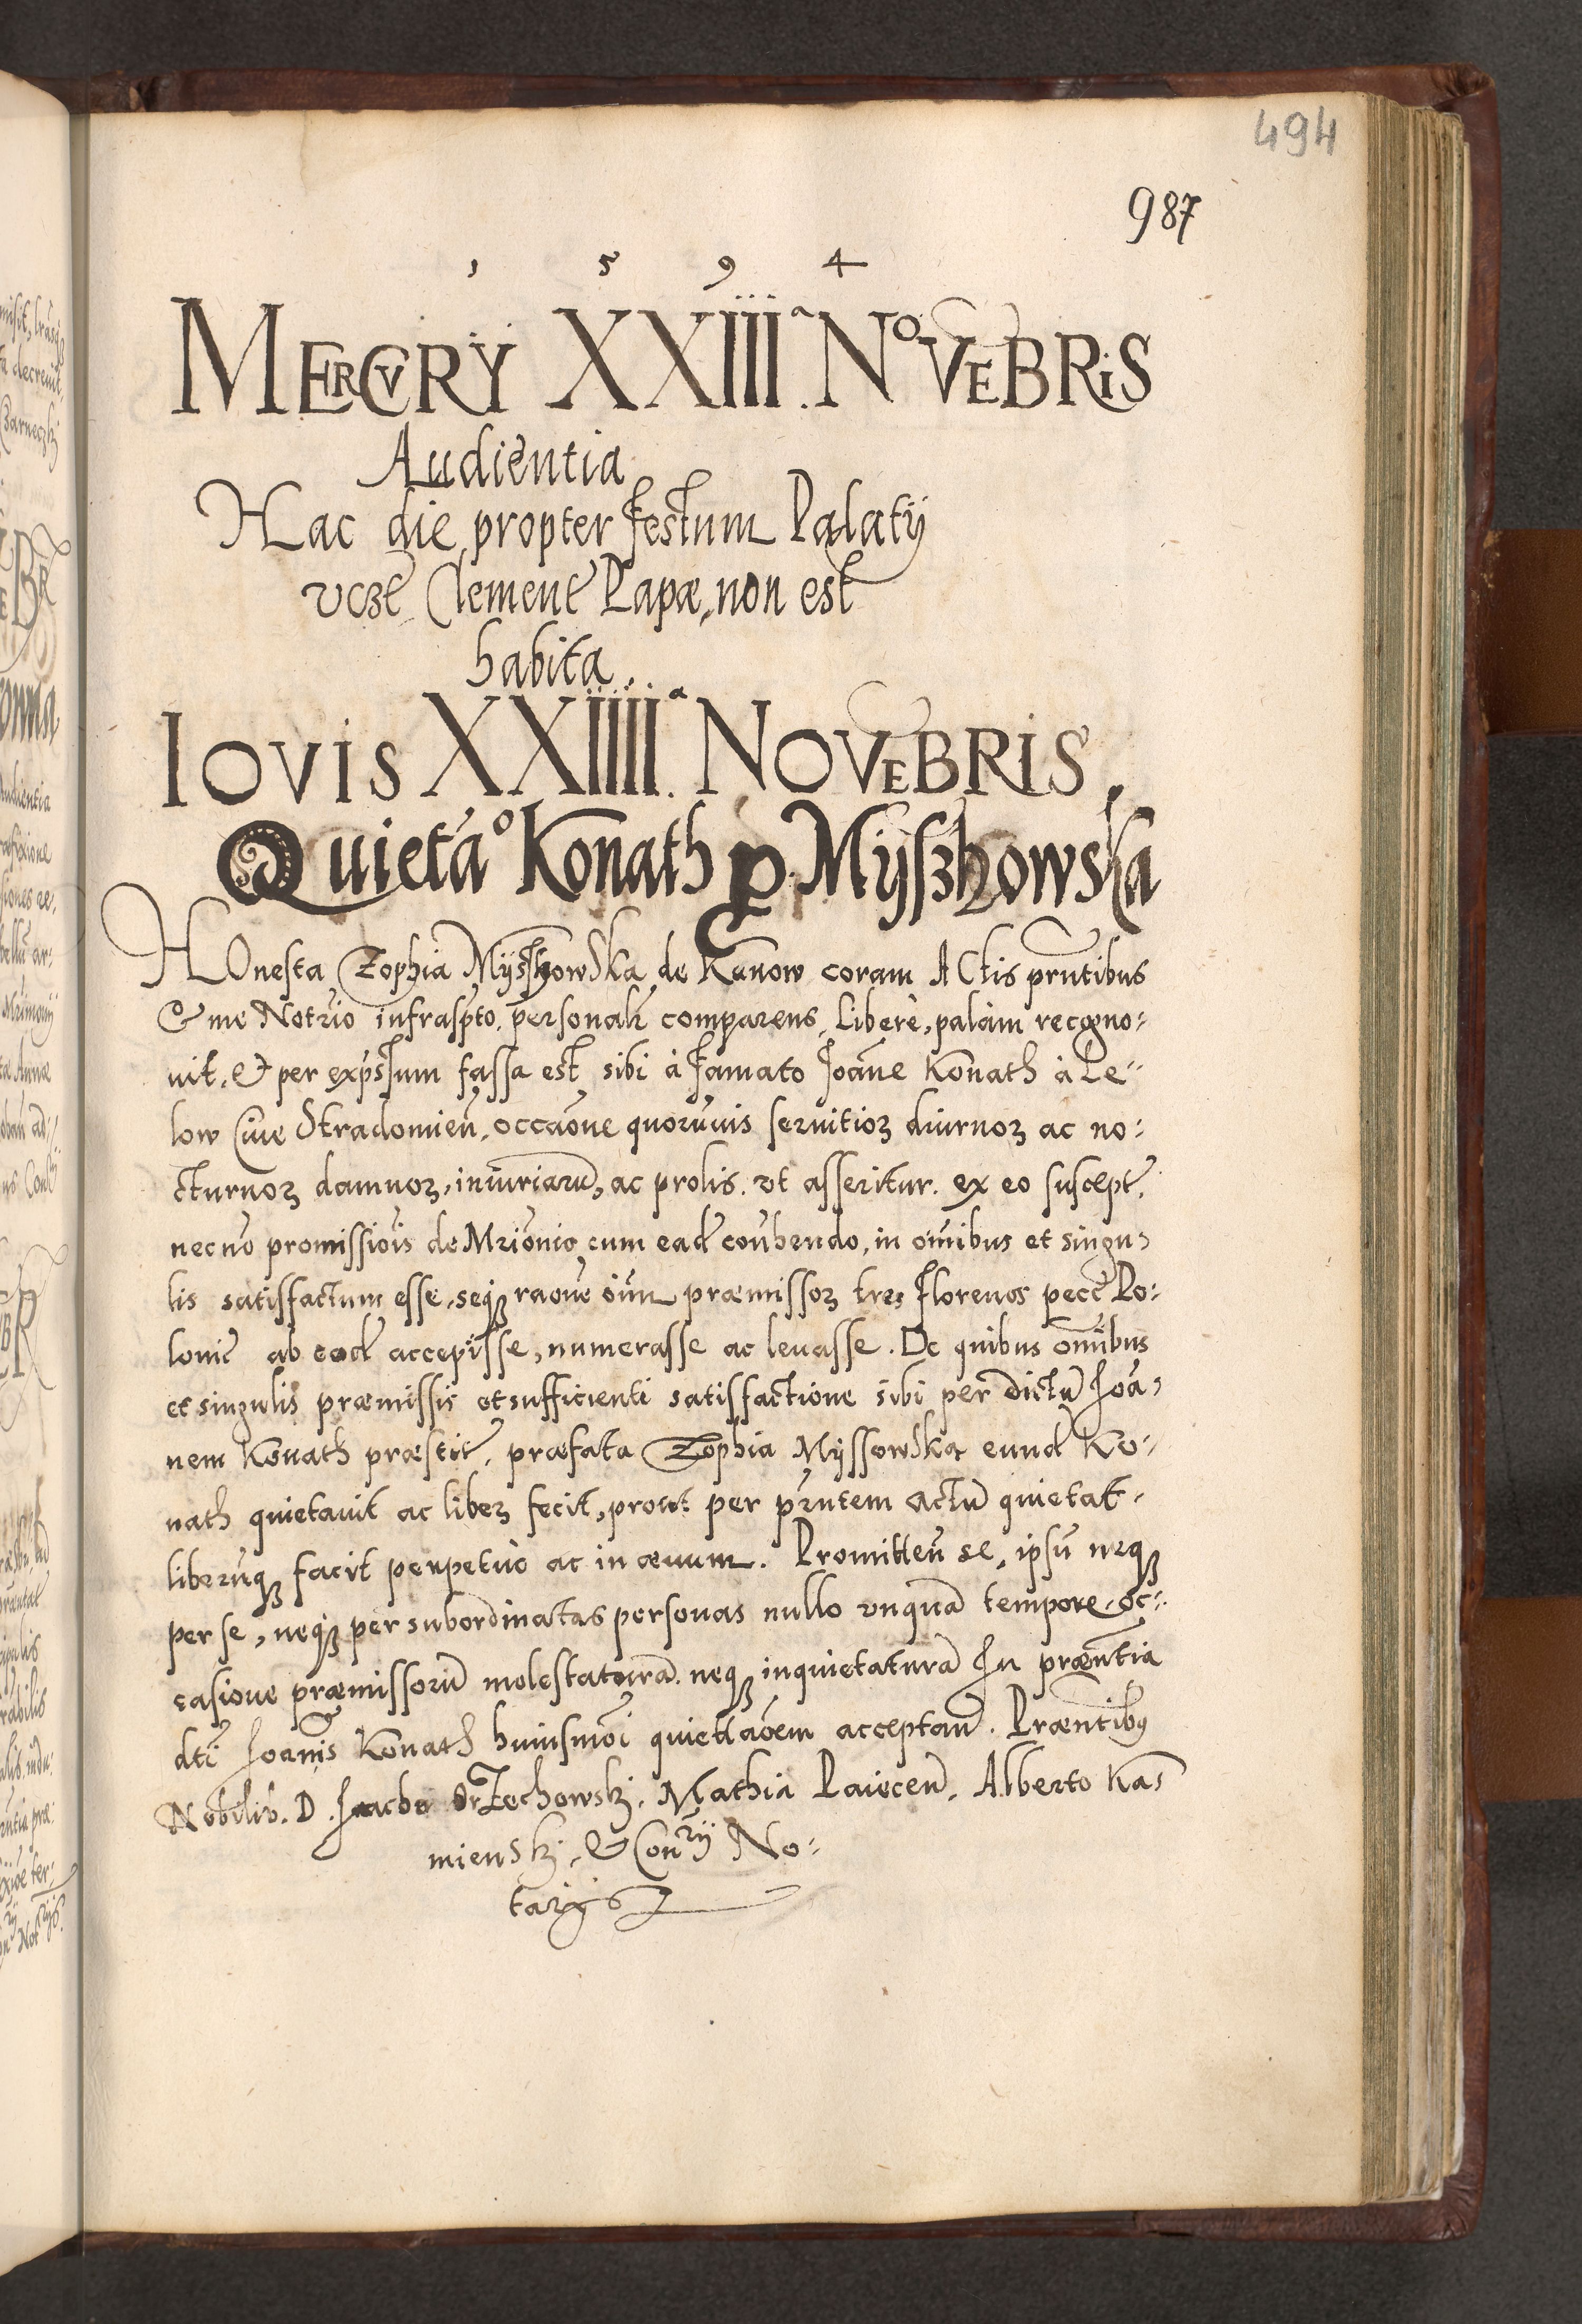 494
987
1 5 9 4
MERCVRY XXIIIa NoVEBRIS
Audientia
Hac die propter festum Palatij
vczt Clement Papæ, non est
habita.
IOVIS XXIIIIa NOVEBRIS
Quietao Konath p. Myszkowska
HOnesta Zophia Myszkowska de Kunow coram ACtis prntibus
& me Notrio infraspto personalr comparens, Liberè, palàm recogno:
uit, & per expssum fassa est sibi à famato Joāne Konath à Le:
low Ciue Stradomien̄, occāone quoruuis seruitioꝝ diurnoꝝ ac no:
cturnoꝝ damnoꝝ, iniuriarū, ac prolis. vt asseritur. ex eo suscept,
necno promissiois de Mrīonio cum ead cōnbendo, in oīnibus et singu:
lis satisfactum esse, seqꝫ raōne oīum præmissoꝝ tres florenos pecc Po:
lonic ab eod accepisse, numerasse ac leuasse. De quibus omībus
et singulis præmissis et sufficienti satisfactione sibi per dictū Joā:
nem Konath præstit, præfata Zophia Myssowska eund Ko:
nath quietauit ac libeꝝ fecit, prout per prntem actū quietat
liberūqꝫ facit perpetuo ac in æuum. Promitten̄ se, ipsū neqꝫ
per se, neqꝫ per subordinatas personas nullo vnquā tempore oc:
casione præmissorū molestaturā neqꝫ inquietaturā In præntia
dti Joannis Konath huiusmōi quiettaōem acceptan̄. Præntibus
Nobilib. D. Jacobo Orzechowskj, Mathia Paiecen̄, Alberto Ka:
mienskj, & Conrij No:
tarijs